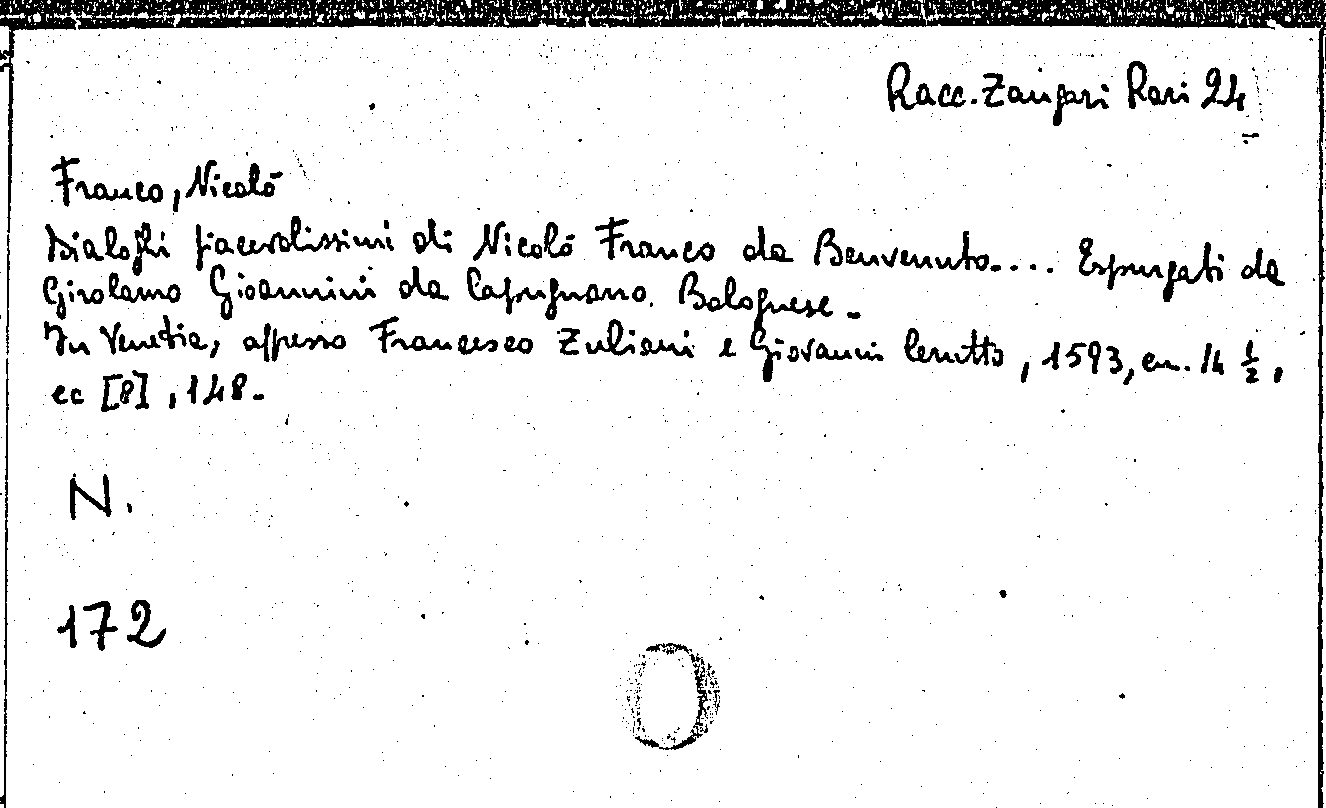 Racc. Zangari Rari 24
Franco, Nicolò
Dialoghi piacevolissimi di Nicolò Franco da Benvenuto.... Espurgati da
Girolamo Gioannini da Capugnano. Bolognese.
In Venetia, appresso Francesco Zuliani e Giovanni Cerutto, 1593, cm. 14 ½,
cc [8], 148.
N.
172